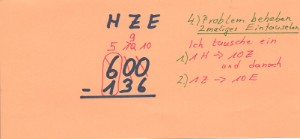 H Z E
9
5 10 10
600
- 136
4) Problem beheben
2maliges Eintauschen
Ich tausche ein
1) 1H → 10Z
und danach
2) 1Z → 10E